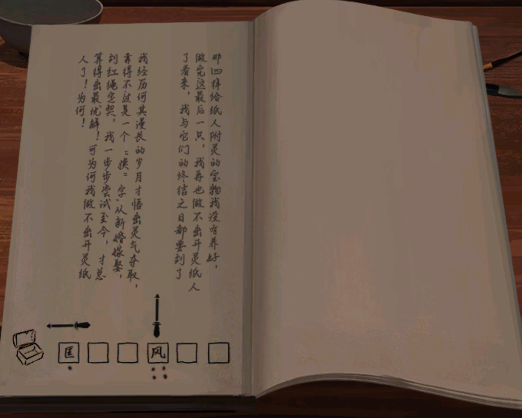 那口得给纸人附灵的宝物我没有养好，
做完这最后一只，我再也做不出斗灵纸人
了看来，我与它们的终结之日都要到了
我经历何其漫长的岁月才悟出灵气夺取，
靠得不过是一个“换”字，从新婚嫁娶，
到红绳定契，我一步步尝试至今，才总
算得出最优解！可为何我做不出斗灵纸
人了！为何！
匡 风